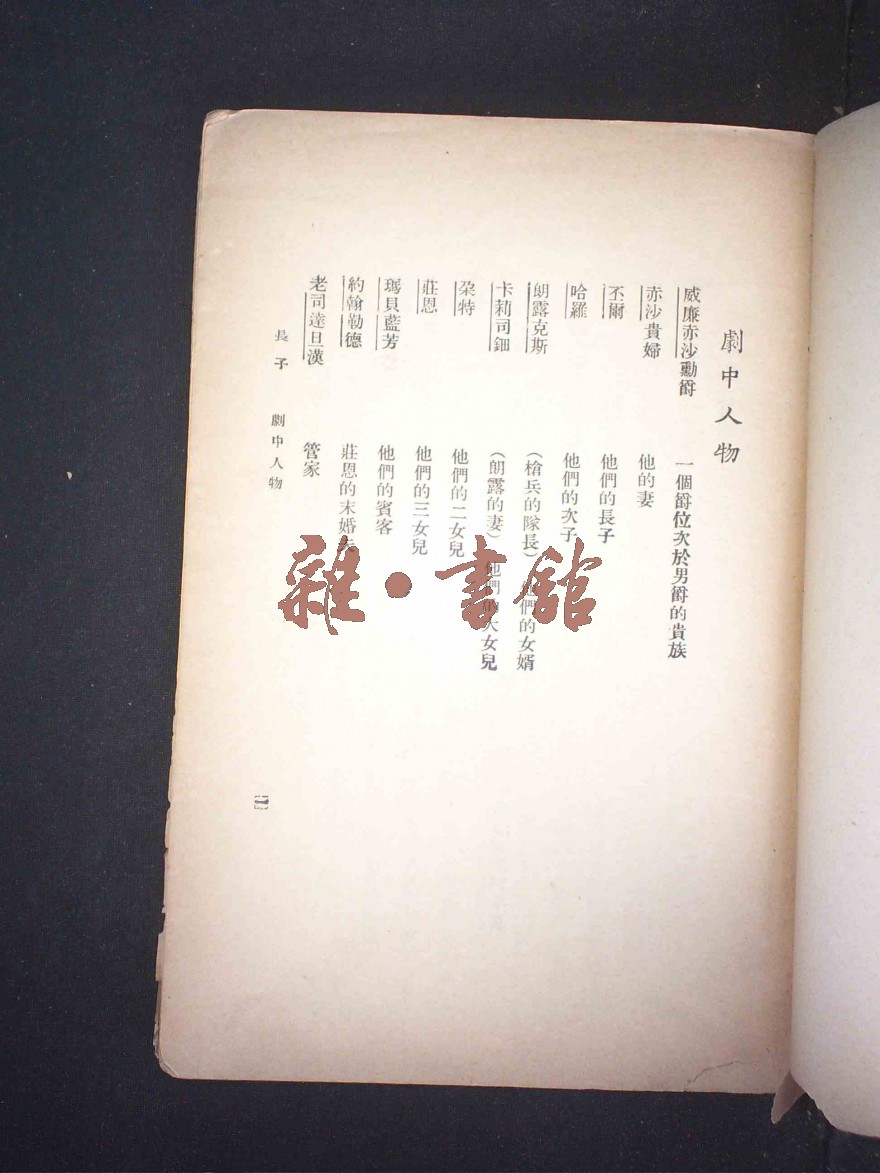 劇中人物
威廉赤沙勳爵 一個爵位次於男爵的貴族
赤沙貴婦 他的妻
丕爾 他們的長子
哈羅 他們的次子
朗露克斯 (槍兵的隊長)他們的女婿
卡莉司鈿 (朗露的妻)他們的大女兒
朶特 他們的二女兒
莊恩 他們的三女兒
瑪貝藍芳 他們的賓客
約翰勒德 莊恩的末婚夫
老司達旦漢 管家
長子 劇中人物
【一】
雜·書館